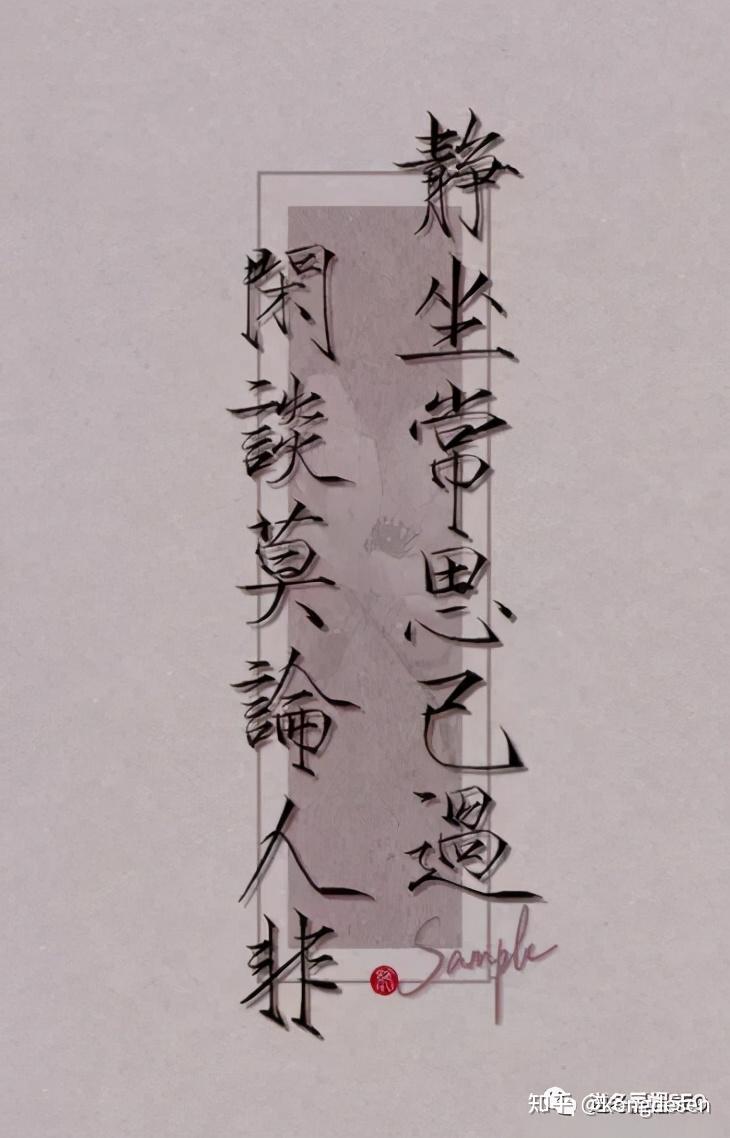 靜坐常思己過
閑談莫論人非
Sample
知乎 @kengdesen